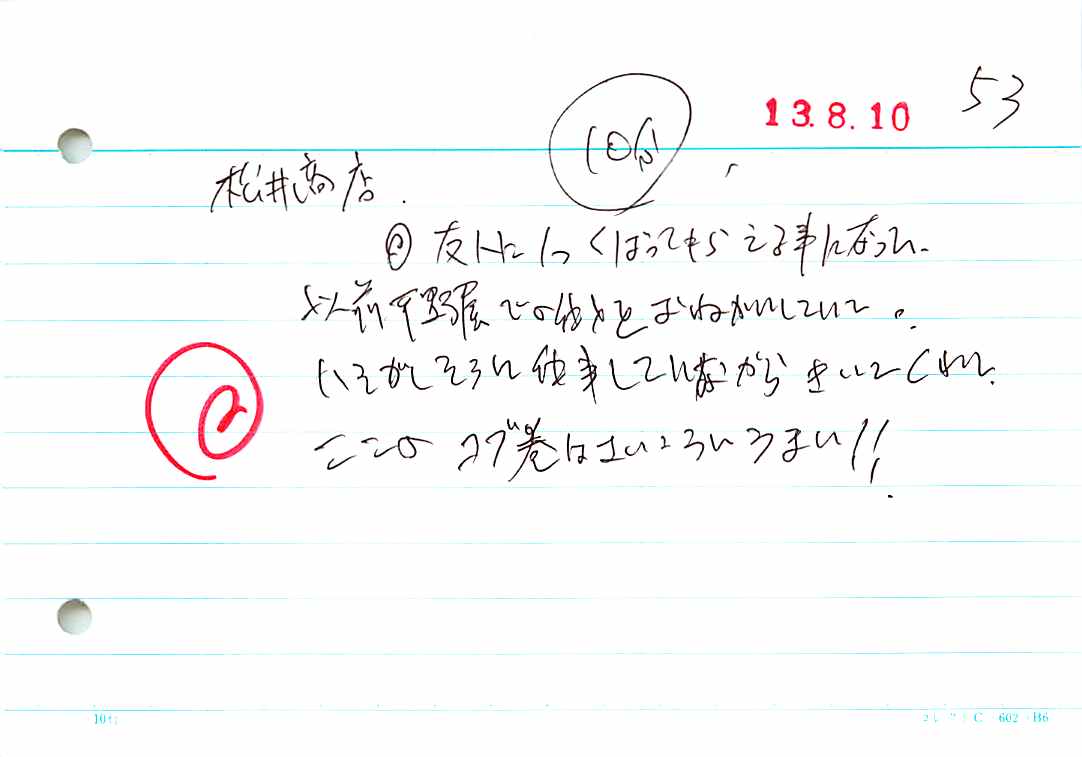 13.8.10 53
10分
松井商店.
友人にくばってもらえる事になった.
以前平野屋でのをおねがいしていて。
いそがしそうに仕事していながらきいてくれた.
ここのコブ巻はさいこうにうまい!!
C 602 B6